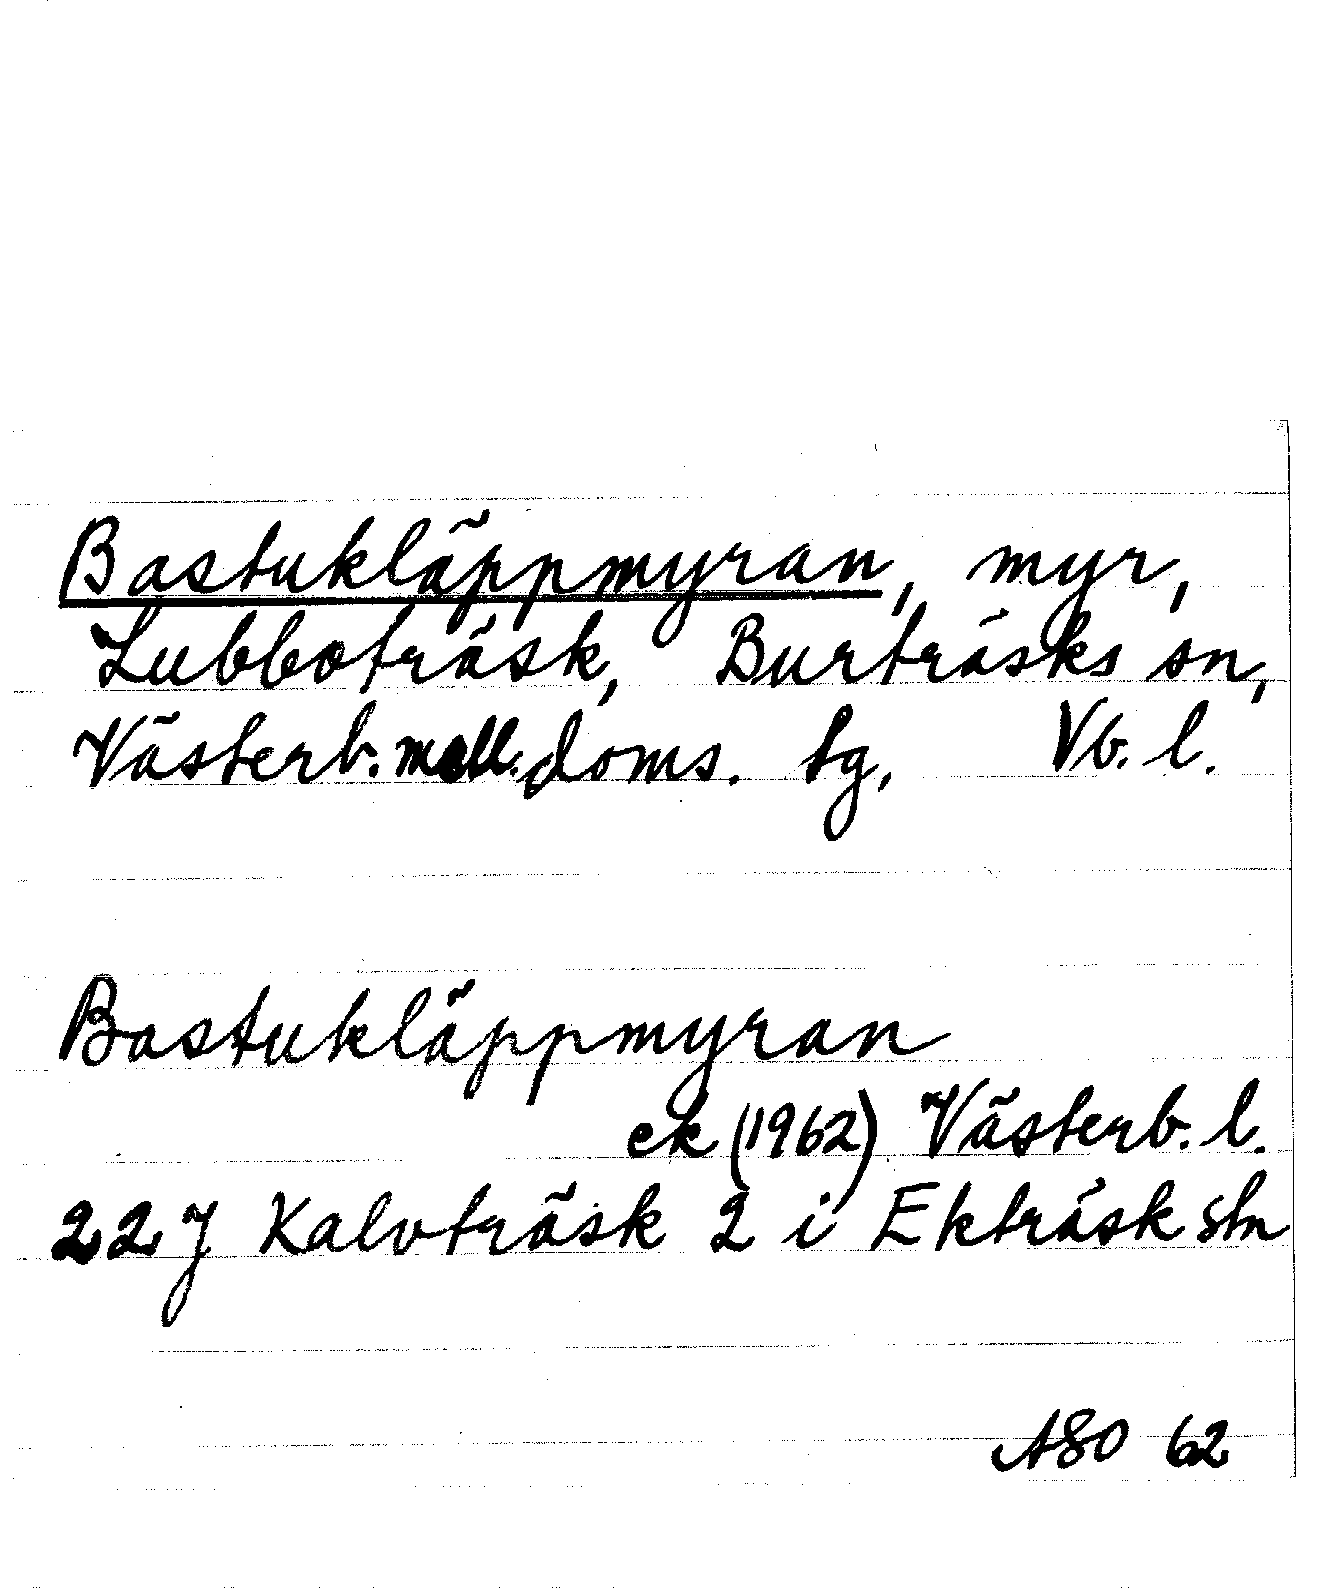 Bastukläppmyran, myr,
Lubboträsk, Burträsks sn,
Västerb. mell. doms. tg, Vb. l.
Bastukläppmyran
ek (1962) Västerb. l.
22J Kalvträsk 2 i Ekträsk stn
ASO 62